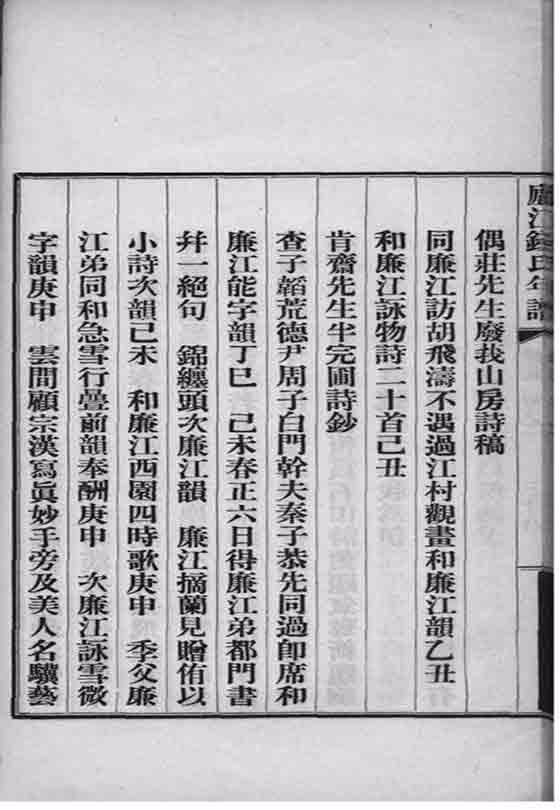 廬江錢氏年譜
偶莊先生廢我山房詩稿
同廉江訪胡飛濤不遇過江村觀畫和廉江韻乙丑
和廉江詠物詩二十首己丑
肯齋先生半完圃詩鈔
查子韜荒德尹周子白門幹夫秦子恭先同過卽席和
廉江能字韻丁巳　己未春正六日得廉江弟都門書
幷一絕句　錦纏頭次廉江韻　廉江摘蘭見贈侑以
小詩次韻己未　和廉江西園四時歌庚申　季父廉
江弟同和急雪行疊前韻奉酬庚申　次廉江詠雪微
字韻庚申　雲間顧宗漢寫眞妙手旁及美人名驥藝